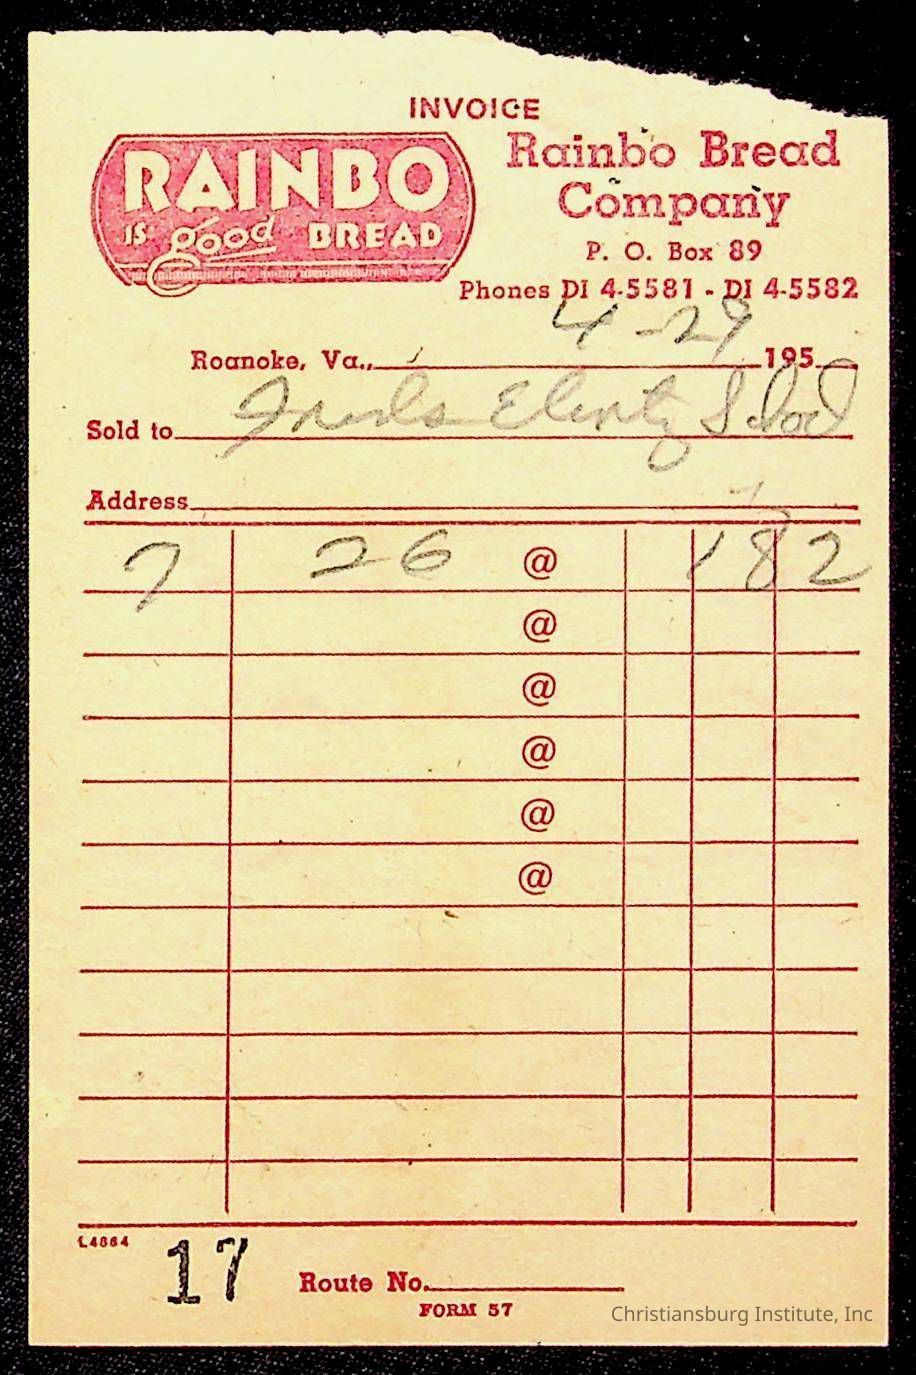 INVOICE
RAINBO
IS good BREAD
Rainbo Bread
Company
P. O. Box 89
Phones DI 4-5581 - DI 4-5582
4-29
Roanoke, Va., 195
Sold to School
Address
7 26 @ 1 82
@
@
@
@
@
L4664
17 Route No.
FORM 57
Christiansburg Institute, Inc